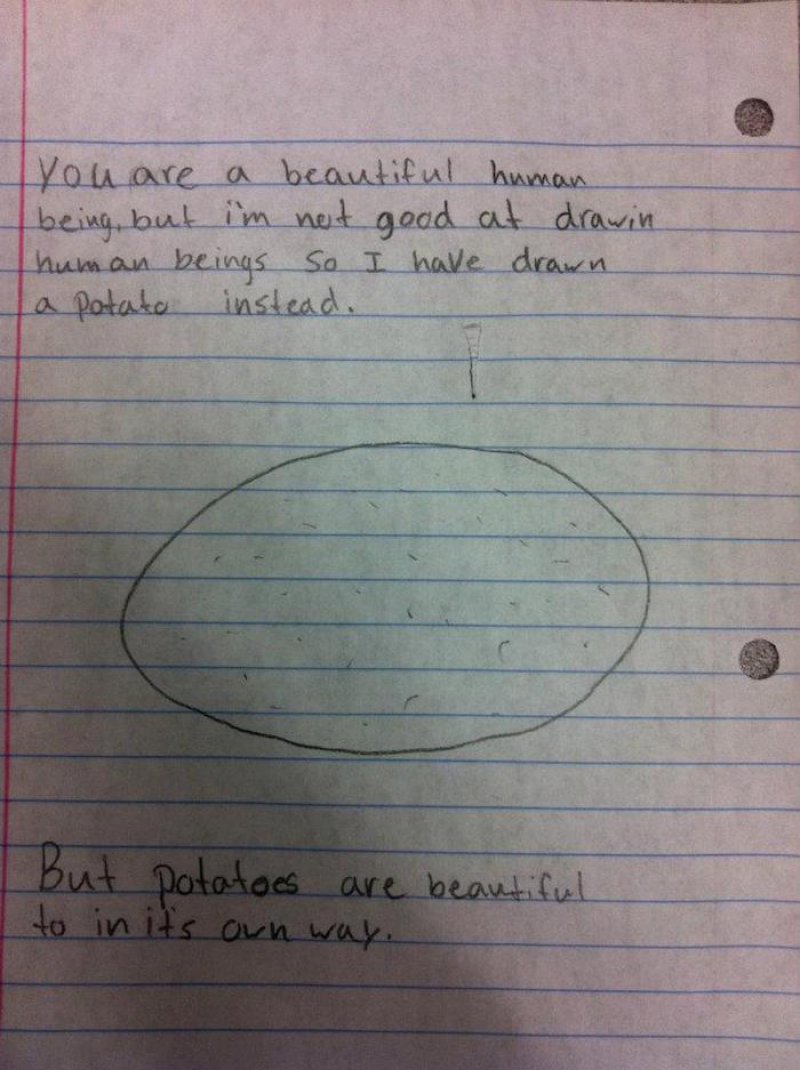 You are a beautiful human
being, but i'm not good at drawin
human beings so I have drawn
a potato instead.
But potatoes are beautiful
to in it's own way.